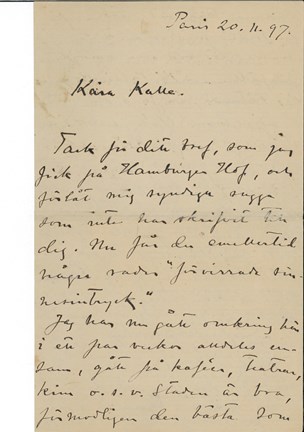 Paris 20.11.97.
Kära Kalle.
Tack för ditt bref, som jag
fick på Hamburger Hof, och
förlåt mig syndiga sugga
som inte har skrifvit till
dig. Nu får du emellertid
några rader "förvirrade sin-
nesintryck."
Jag har nu gått omkring här
i ett par veckor alldeles en-
sam, gått på kaféer, teatrar,
o.s.v. Staden är bra,
förmodligen den bästa som